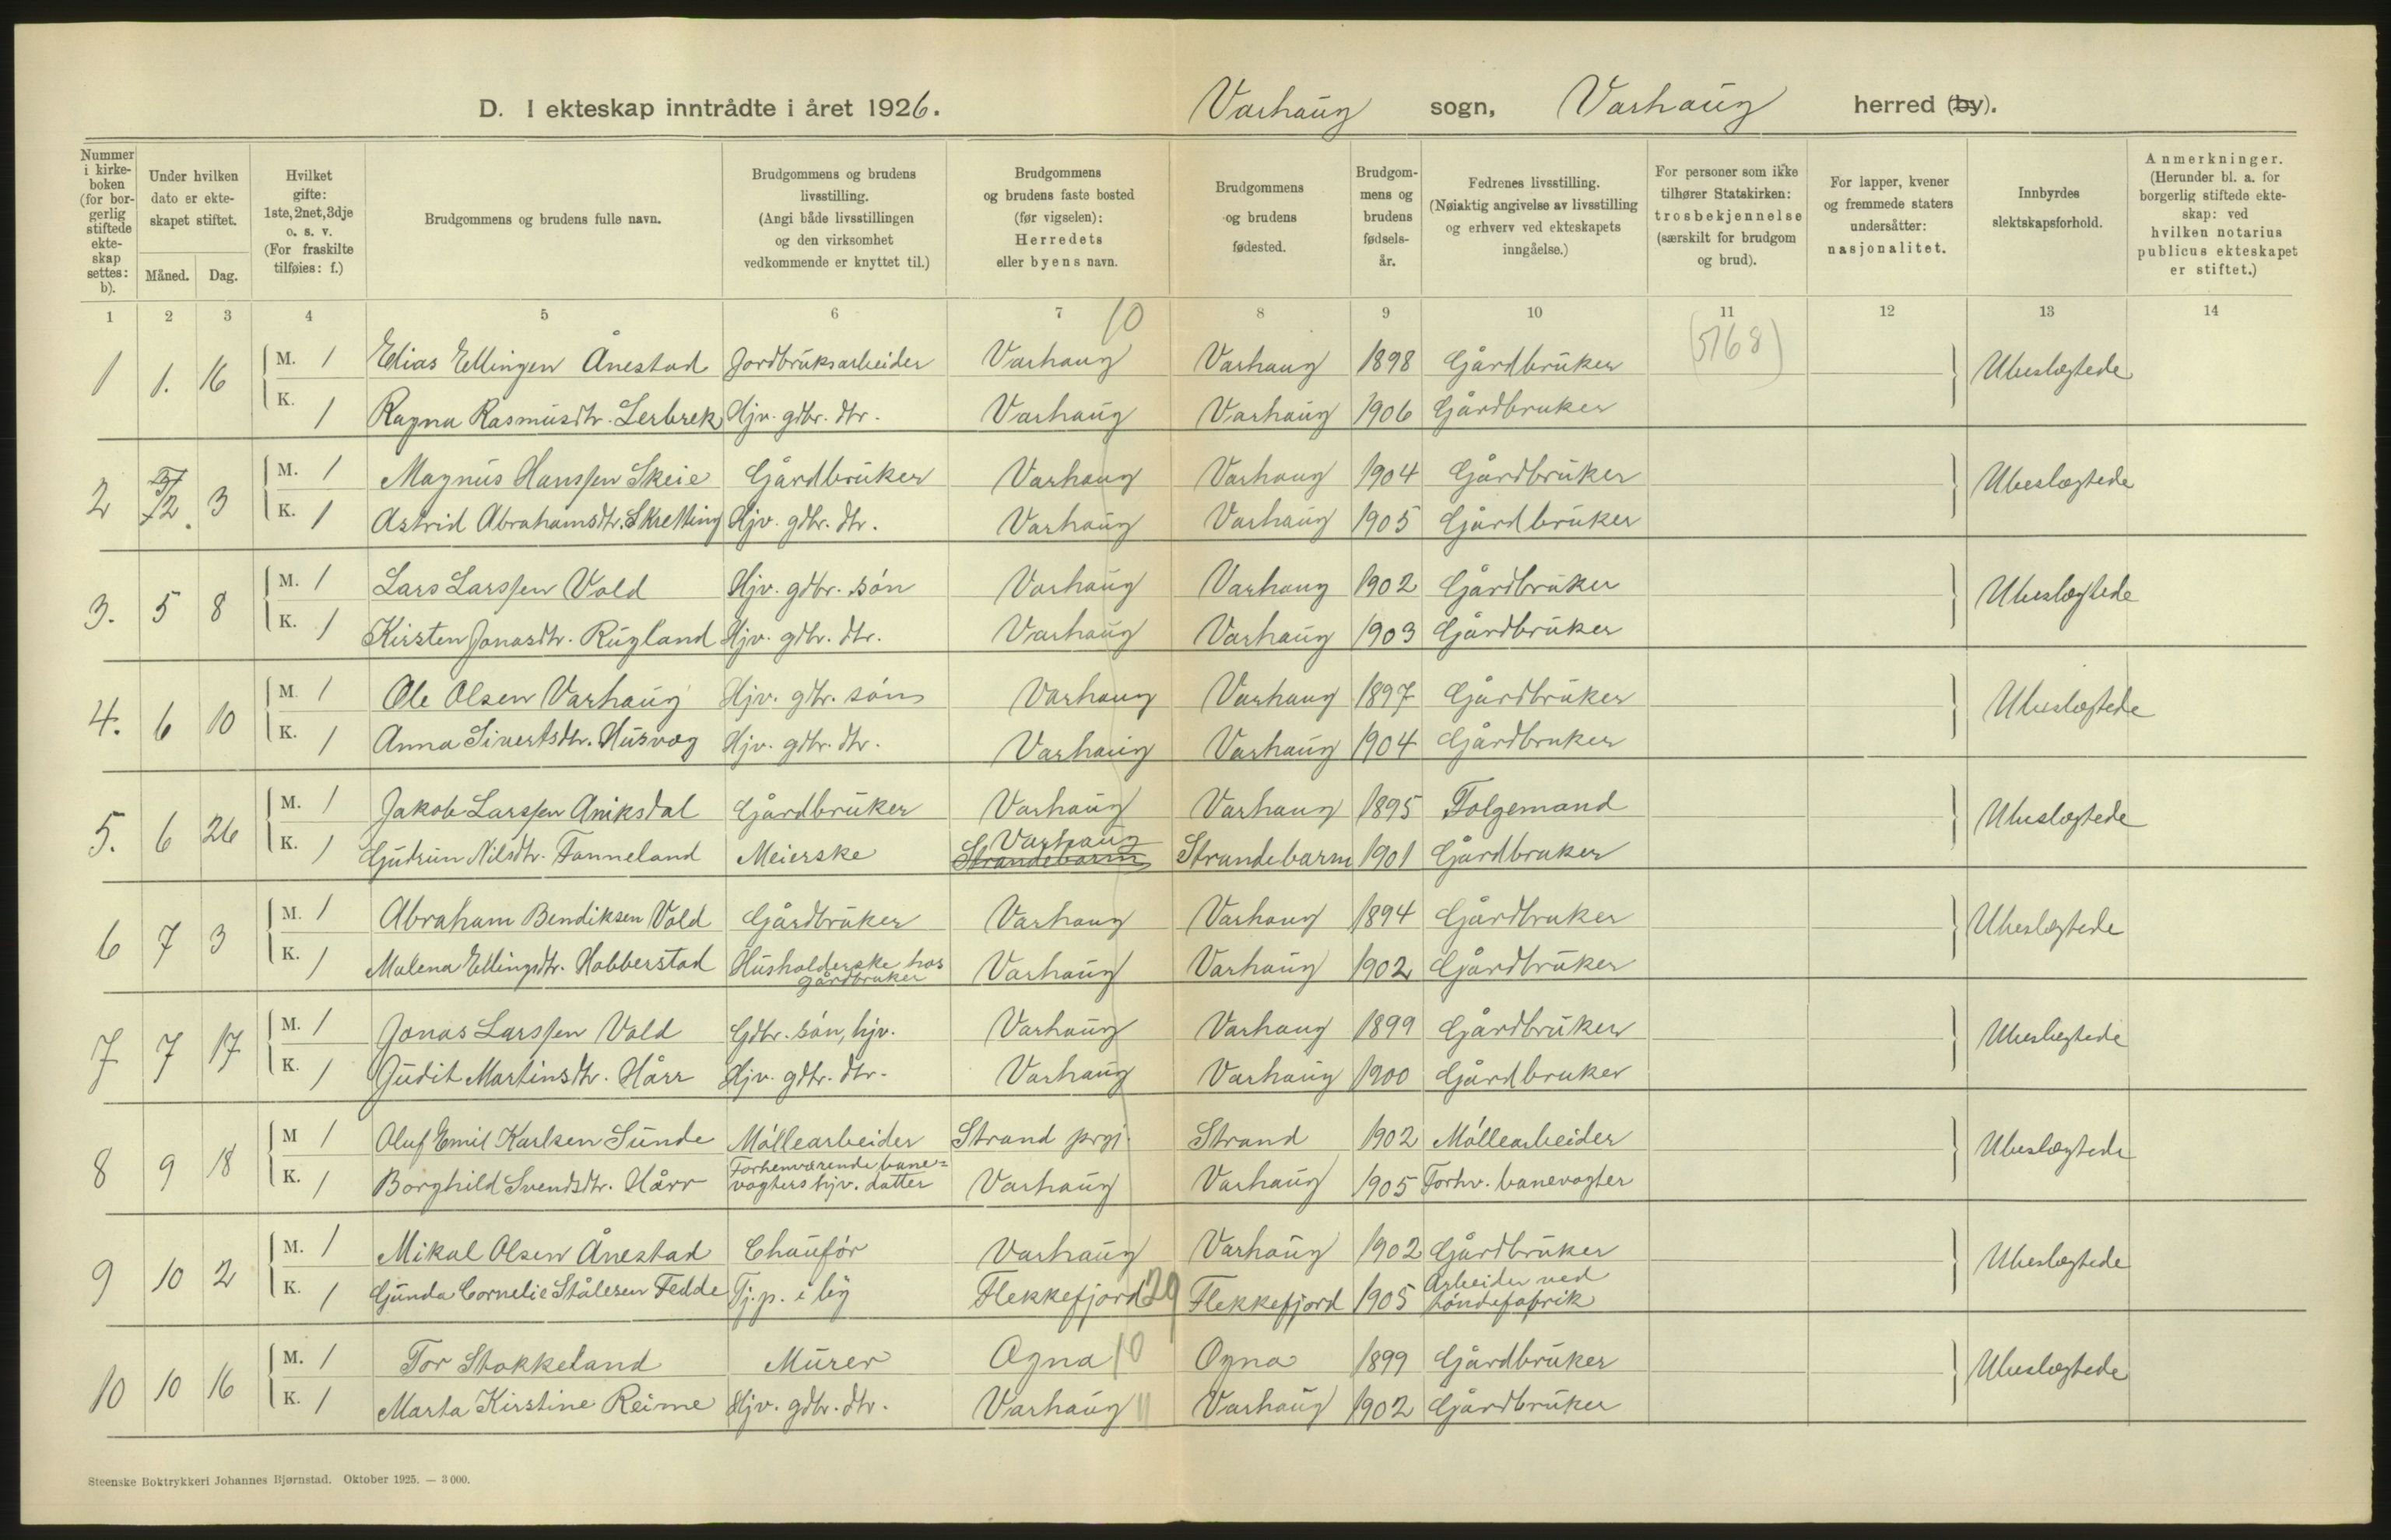 D. I ekteskap inntrådte i året 1926. Varhaug sogn, Varhaug herred (by).
Nummer i kirke- boken (for bor- gerlig stiftede ekte- skap settes: b).
Under hvilken dato er ekte- skapet stiftet.
Måned. Dag.
Hvilket gifte: 1ste, 2net, 3dje o. s. v. (For fraskilte tilføies: f.)
Brudgommens og brudens fulle navn.
Brudgommens og brudens livsstilling. (Angi både livsstillingen og den virksomhet vedkommende er knyttet til.)
Brudgommens og brudens faste bosted (før vigselen): Herredets eller byens navn.
Brudgommens og brudens fødested.
Brudgom- mens og brudens fødsels- år.
Fedrenes livsstilling. (Nøiaktig angivelse av livsstilling og erhverv ved ekteskapets inngåelse.)
For personer som ikke tilhører Statskirken: trosbekjennelse (særskilt for brudgom og brud).
For lapper, kvener og fremmede staters undersåtter: nasjonalitet.
Innbyrdes slektskapsforhold.
Anmerkninger. (Herunder bl. a. for borgerlig stiftede ekte- skap: ved hvilken notarius publicus ekteskapet er stiftet.)
1 2 3 4 5 6 7 8 9 10 11 12 13 14
10
(5768)
1 1. 16 M. 1 Elias Ellingsen Ånestad Jordbruksarbeider Varhaug Varhaug 1898 Gårdbruker Ubeslægtede
K. 1 Ragna Rasmusdtr. Lerbrek Hjv. gdbr. dtr. Varhaug Varhaug 1906 Gårdbruker
2 3 M. 1 Magnus Hanssen Skeie Gårdbruker Varhaug Varhaug 1904 Gårdbruker Ubeslægtede
K. 1 Astrid Abrahamsdtr. Skretting Hjv. gdbr. dtr. Varhaug Varhaug 1905 Gårdbruker
3. 5 8 M. 1 Lars Larssen Vold Hjv. gdbr. søn Varhaug Varhaug 1902 Gårdbruker Ubeslægtede
K. 1 Kirsten Jonasdtr. Rugland Hjv. gdbr. dtr. Varhaug Varhaug 1903 Gårdbruker
4. 6 10 M. 1 Ole Olsen Varhaug Hjv. gdbr. søn Varhaug Varhaug 1897 Gårdbruker Ubeslægtede
K. 1 Anna Sivertsdtr. Husvæg Hjv. gdbr. dtr. Varhaug Varhaug 1904 Gårdbruker
5. 6 26 M. 1 Jakob Larssen Aniksdal Gårdbruker Varhaug Varhaug 1895 Folgemand Ubeslægtede
K. 1 Gudrun Nilsdtr. Fonneland Meierske Strandebarm Varhaug Strandebarm 1901 Gårdbruker
6 7 3 M. 1 Abraham Bendiksen Vold Gårdbruker Varhaug Varhaug 1894 Gårdbruker Ubeslægtede
K. 1 Malena Ellingsdtr. Hobberstad Husholderske hos gårdbruker Varhaug Varhaug 1902 Gårdbruker
7 7 17 M. 1 Jonas Larssen Vold Gdbr. søn, hjv. Varhaug Varhaug 1899 Gårdbruker Ubeslægtede
K. 1 Judit Martinsdtr. Hårr Hjv. gdbr. dtr. Varhaug Varhaug 1900 Gårdbruker
8 9 18 M 1 Oluf Emil Karlsen Sunde Møllearbeider Strand prgj. Strand 1902 Møllearbeider Ubeslægtede
K. 1 Borghild Svendsdtr. Hårr Forhenværende bane= vogters hjv. datter Varhaug Varhaug 1905 Forhv. banevogter
9 10 2 M. 1 Mikal Olsen Ånestad Chauffør Varhaug Varhaug 1902 Gårdbruker Ubeslægtede
K. 1 Gunda Cornelie Stålesen Fedde Tj.p. i by Flekkefjord 29 Flekkefjord 1905 Arbeider ved tøndefabrik
10 10 16 M. 1 Tor Stokkeland Murer Ogna 10 Ogna 1899 Gårdbruker Ubeslægtede
K. 1 Marta Kirstine Reime Hjv. gdbr. dtr. Varhaug 11 Varhaug 1902 Gårdbruker
Steenske Boktrykkeri Johannes Bjørnstad. Oktober 1925. — 3 000.